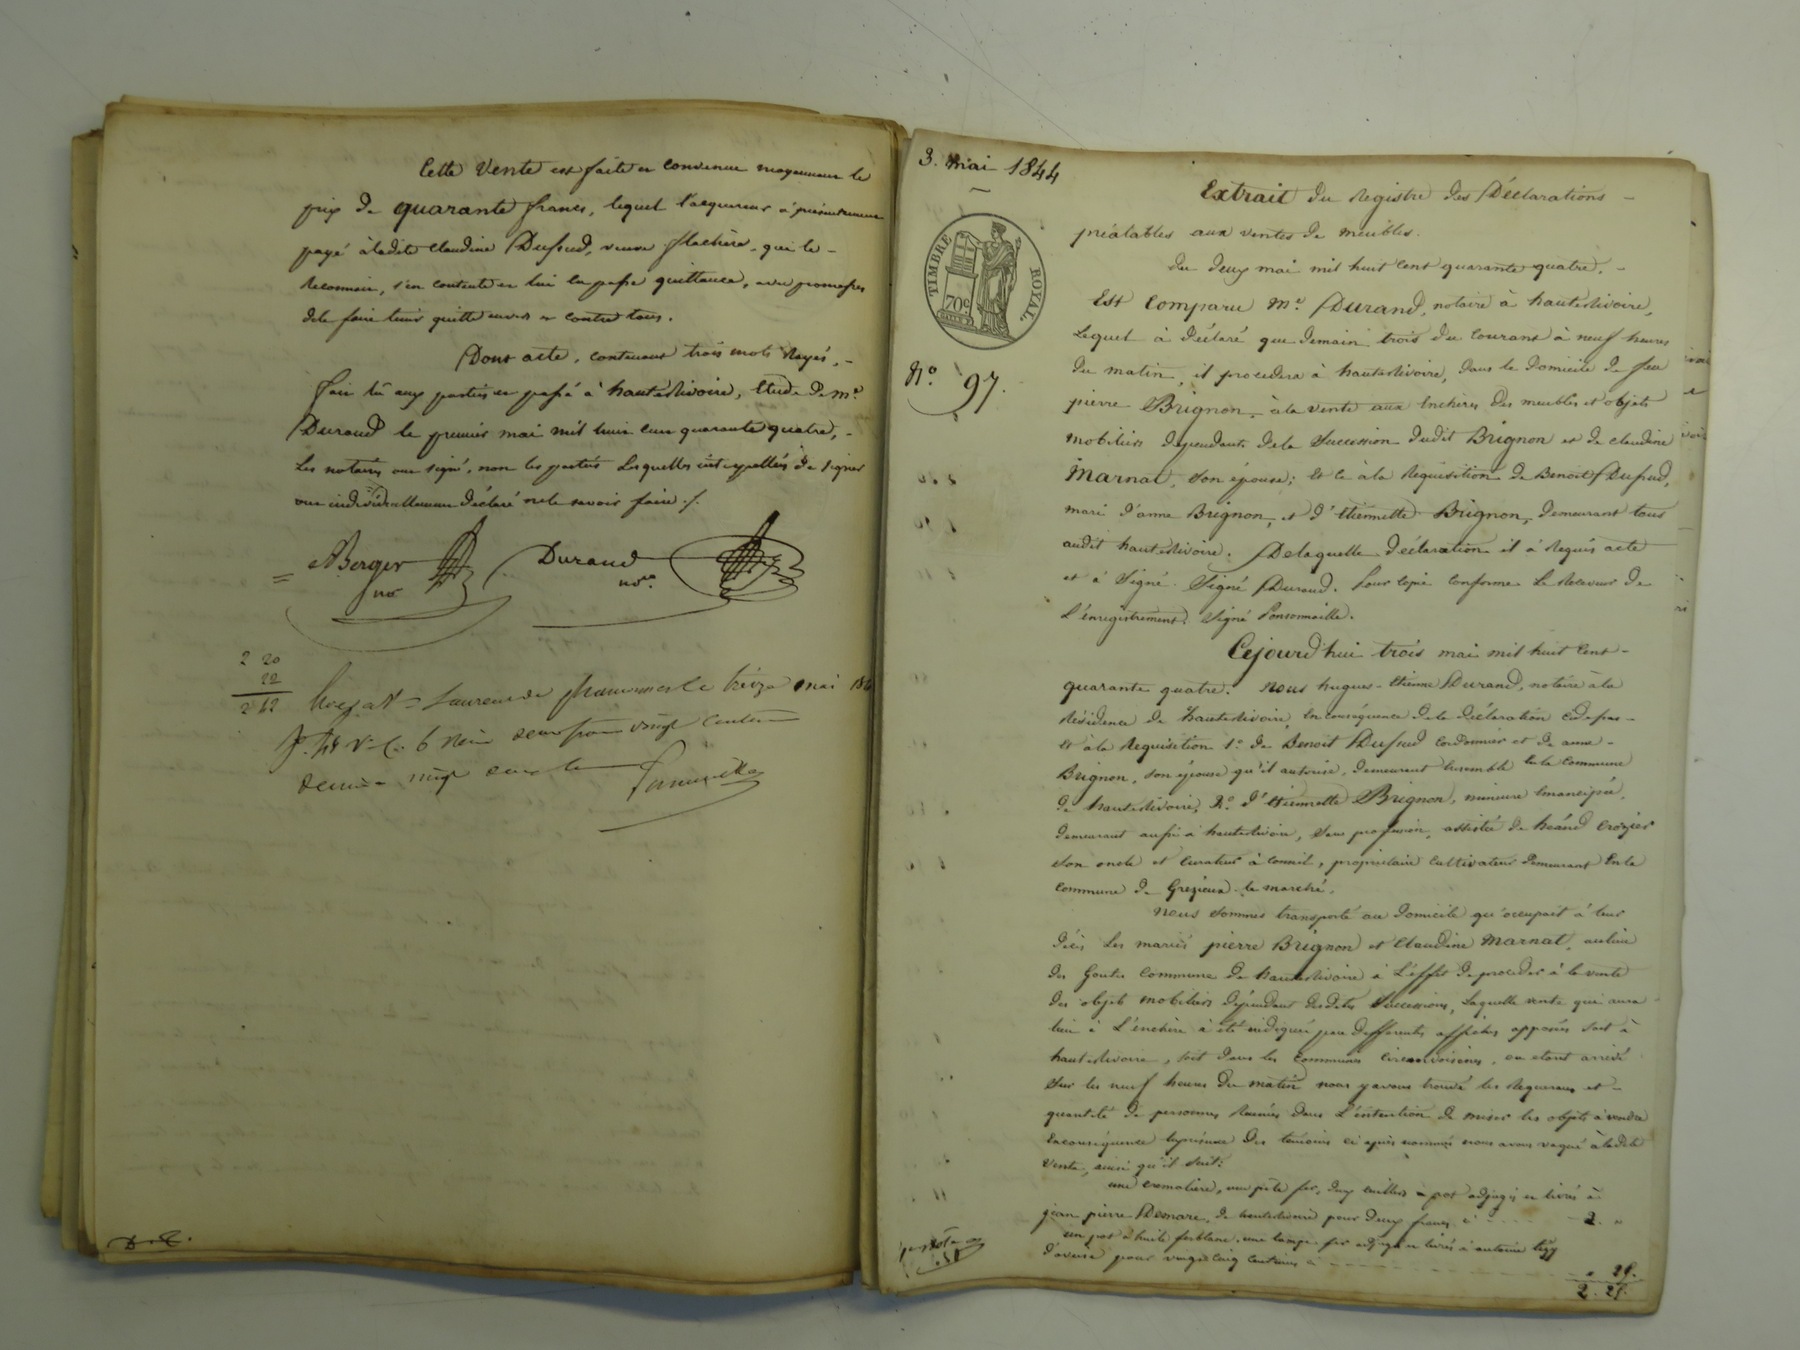 Cette Vente est faite et convenue moyennant le
prix de quarante francs, lequel l'acquereur à présentement
payé à ladite Claudine Dufud, veuve flachère, qui le -
Reconnait, s'en contente et lui en passe quittance, avec promesses
de le faire tenir quitte envers et contre tous.
Dont acte, contenant trois mots Rayés, -
fait lû aux parties et passé à hauterivoire, Etude de Me
Durand le premier mai mil huit cent quarante quatre, -
Les notaires ont signé, non les parties Lesquelles interpellées de signer
ont individuellement déclaré ne le savoir faire ./.
Berger nre
Durand nre
2 20
22
2 42
mai
vingt centimes
D. C.
3. mai 1844
TIMBRE ROYAL
70c.
No. 97.
Extrait du Registre des Déclarations -
préalables aux ventes de meubles.
du deux mai mil huit cent quarante quatre. -
Est Comparu Me. Durand, notaire à hauterivoire,
Lequel à déclaré que demain trois du courant à neuf heures
du matin, il procedera à hauterivoire, dans le domicile de feu
pierre Brignon, à la vente aux Enchères des meubles et objets
mobiliers dependants de la Succession dudit Brignon et de claudine
Marnat, Son épouse; Et ce à la Requisition de Benoit Dufud,
mari d'anne Brignon, et d'Etiennette Brignon, demeurant tous
audit hauterivoire. De laquelle déclaration il à Requis acte
et à Signé. Signé Durand. Pour copie conforme Le Receveur de
L'énregistrement. Signé Ponsonnaille.
Cejourd'hui trois mai mil huit Cent -
quarante quatre. Nous hugues - Etienne Durand, notaire à la
Résidence de hauterivoire, En conséquence de la déclaration cidessus -
Et à la Requisition 1o. de Benoit Dufud Cordonnier et de anne -
Brignon, son épouse qu'il autorise, demeurant Ensemble En la Commune
de hauterivoire, 2o. d'Etiennette Brignon, mineure Emancipée,
demeurant aussi à hauterivoire, Sans profession, assistée de Crozier
Son oncle et Curateur à Conseil, propriétaire Cultivateur demeurant En la
Commune de Grezieux le marché.
Nous Sommes transporté au domicile qu'occupait à leur
décès Les mariés pierre Brignon et Claudine Marnat, au lieu
des Goutes Commune de hauterivoire à L'éffet de proceder à la vente
des objets mobiliers dépendant desdites Successions, Laquelle vente qui aura
lieu à L'enchère à été indiquée par differentes affiches apposées soit à
hauterivoire, soit dans les Communes Circonvoisines, ou étant arrivé
Sur les neuf heures du matin nous y avons trouvé les Requerants et -
quantité de personnes Réunies dans L'intention de miser les objets à vendre
En conséquence En présence des témoins ci après nommés nous avons vaqué à ladite
vente, ainsi qu'il Suit:
une cremalière, une pèle fer, deux cuillers à pot adjugés et livrés à
jean pierre Demare, de hauterivoire pour deux francs, ci - - - 2. "
un pot à huile ferblanc, une lampe fer adjugés et livrés à antoine
d'aveise pour vingt cinq centimes ci - - - " 25.
2. 25.